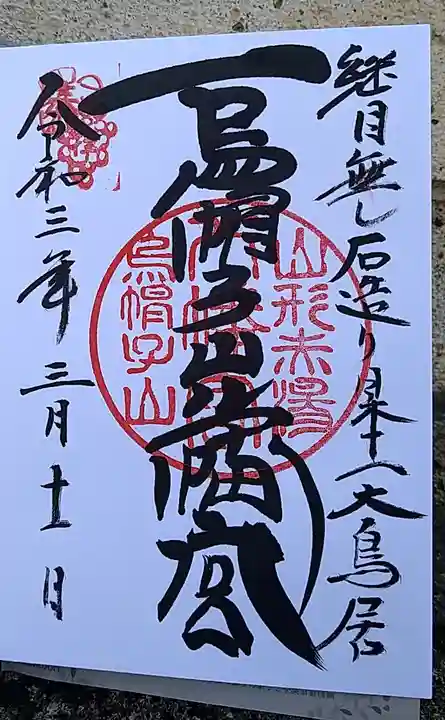 継目無し石造り日本一大鳥居
烏帽子山八幡宮
令和三年三月十一日
山形赤湯
烏帽子山